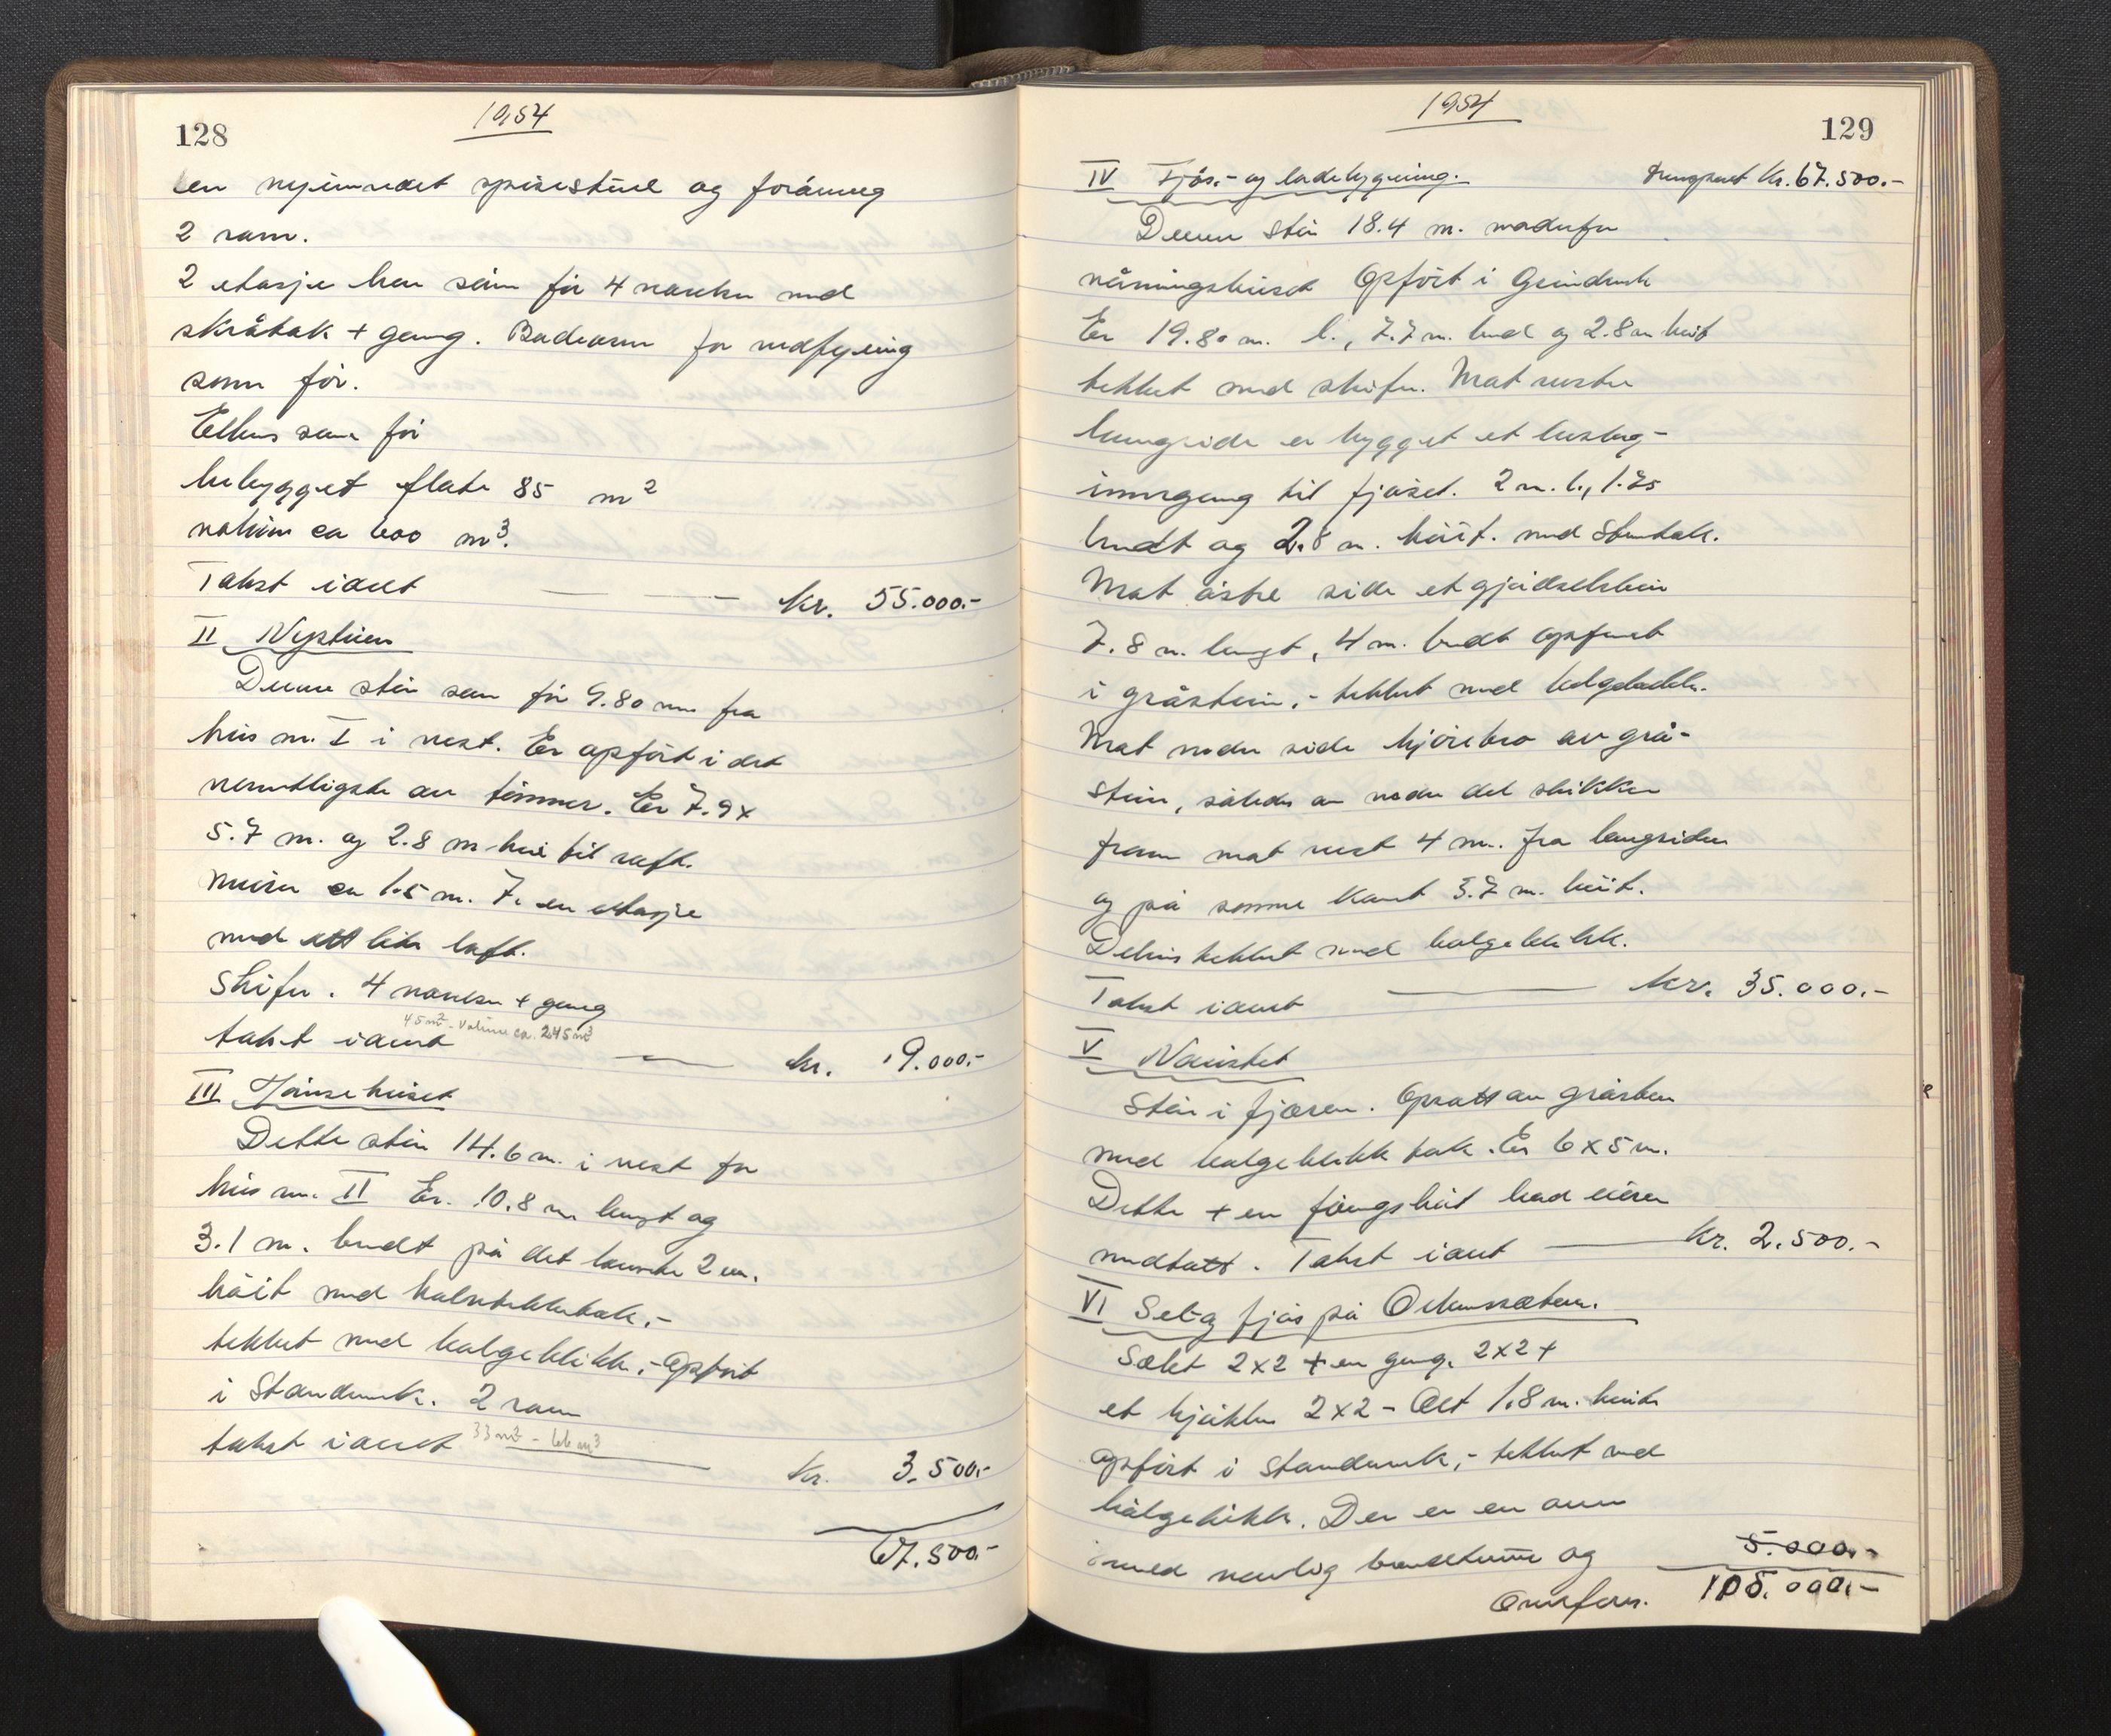 128
1954
en nyinnredet spisestue og forøvrig
2 rom.
2 etasje har som før 4 værelser med
skråtak + gang. Badeovn for vedfyring
som før.
Ellers som før
bebygget flate 85 m²
volum ca 600 m³.
Takst i alt — — kr. 55.000.-
II Nystuen
Denne står som før 9.80 m fra
hus nr. I i vest. Er opført i det
vesentligste av tømmer. Er 7.9 x
5.7 m. og 2.8 m høi til raft.
Muren ca 1.5 m. en etasje
med ett lite loft.
Skifer. 4 værelser + gang
45 m². Volum ca. 245 m³
takst i alt — kr. 9.000.-
III Hønsehuset
Dette står 14.6 m. i vest for
hus nr. II Er 10.8 m langt og
3.1 m. bredt på det 2 m.
høit med halvtekketak.-
tekket med bølgeblikk.- Opført
i Standverk. 2 rom
takst i alt 33 m² - 66 m³ kr. 3.500.-
67.500.-
129
1954
IV Fjøs.- og ladebygning. kr. 67.500.-
Denne står 18.4 m. nordenfor
våningshuset Opført i Grindverk
Er 19.80 m. l., 7.7 m. bred og 2.8 m høit
tekket med skifer. Mot vestre
langside er bygget et bislag-
inngang til fjøset. 2 m. l., 1.75
bredt og 2.8 m. høit. med Stentak.
Mot østre side et gjødselskur
7.8 m. langt, 4 m. bredt opført
i gråstein,- tekket med bølgeblikk.
Mot nordre side kjørebro av grå-
stein, således at nedre del stikker
fram mot vest 4 m. fra langsiden
og på samme kant 3.7 m. høit.
Delvis tekket med bølgeblikk.
Takst i alt — kr. 35.000.-
V Naustet
Står i fjæren. Opsatt av gråsten
med bølgeblikk tak. Er 6 x 5 m.
Dette + en føringsbåt bad eieren
medtatt. Takst i alt — kr. 2.500.-
VI Sel og fjøs på
Selet 2x2 + en gang. 2x2 +
et kjøkken 2x2 - Alt 1.8 m. høide
opført i standverk,- tekket med
bølgeblikk. Der er en ovn
med vanlig brandmur og 5.000.-
Overføres. 105.000.-